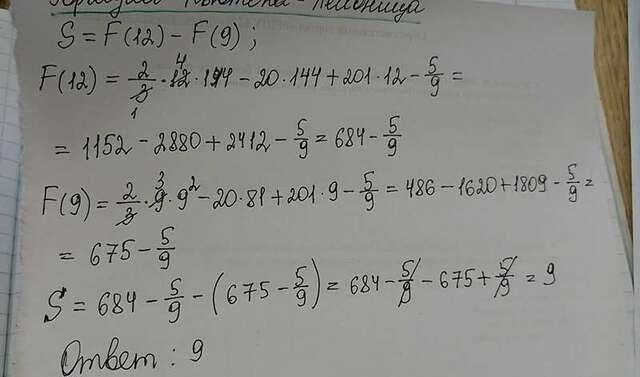 Формула Ньютона-Лейбница
S = F(12) - F(9) ;
F(12) = 2/3 · 12 · 144 - 20 · 144 + 201 · 12 - 5/9 =
4
1
= 1152 - 2880 + 2412 - 5/9 = 684 - 5/9
F(9) = 2/3 · 9 · 9² - 20 · 81 + 201 · 9 - 5/9 = 486 - 1620 + 1809 - 5/9 =
3
= 675 - 5/9
S = 684 - 5/9 - (675 - 5/9) = 684 - 5/9 - 675 + 5/9 = 9
Ответ : 9